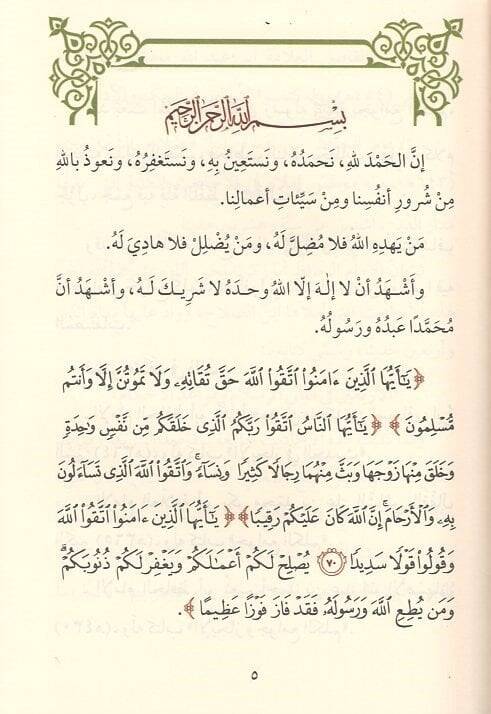 بِسْمِ ٱللَّهِ ٱلرَّحْمَٰنِ ٱلرَّحِيمِ
إنَّ الحَمْدَ للهِ، نَحمَدُهُ، ونَستَعِينُ بِهِ، ونَستَغفِرُهُ، ونَعوذُ باللهِ
مِنْ شُرورِ أنفُسِنا ومِنْ سَيِّئاتِ أعمالِنا.
مَنْ يَهدِهِ اللهُ فلا مُضِلَّ لَهُ، ومَنْ يُضْلِلْ فلا هادِيَ لَهُ.
وأَشْهَدُ أنْ لا إلٰهَ إلّا اللهُ وحدَهُ لا شَرِيكَ لَهُ، وأشْهَدُ أنَّ
مُحَمَّدًا عَبدُهُ ورَسُولُهُ.
﴿يَٰٓأَيُّهَا ٱلَّذِينَ ءَامَنُوا۟ ٱتَّقُوا۟ ٱللَّهَ حَقَّ تُقَاتِهِۦ وَلَا تَمُوتُنَّ إِلَّا وَأَنتُم
مُّسْلِمُونَ﴾ ﴿يَٰٓأَيُّهَا ٱلنَّاسُ ٱتَّقُوا۟ رَبَّكُمُ ٱلَّذِى خَلَقَكُم مِّن نَّفْسٍ وَٰحِدَةٍ
وَخَلَقَ مِنْهَا زَوْجَهَا وَبَثَّ مِنْهُمَا رِجَالًا كَثِيرًا وَنِسَآءً ۚ وَٱتَّقُوا۟ ٱللَّهَ ٱلَّذِى تَسَآءَلُونَ
بِهِۦ وَٱلْأَرْحَامَ ۚ إِنَّ ٱللَّهَ كَانَ عَلَيْكُمْ رَقِيبًا﴾ ﴿يَٰٓأَيُّهَا ٱلَّذِينَ ءَامَنُوا۟ ٱتَّقُوا۟ ٱللَّهَ
وَقُولُوا۟ قَوْلًا سَدِيدًا ٧٠ يُصْلِحْ لَكُمْ أَعْمَٰلَكُمْ وَيَغْفِرْ لَكُمْ ذُنُوبَكُمْ ۗ
وَمَن يُطِعِ ٱللَّهَ وَرَسُولَهُۥ فَقَدْ فَازَ فَوْزًا عَظِيمًا﴾.
٥